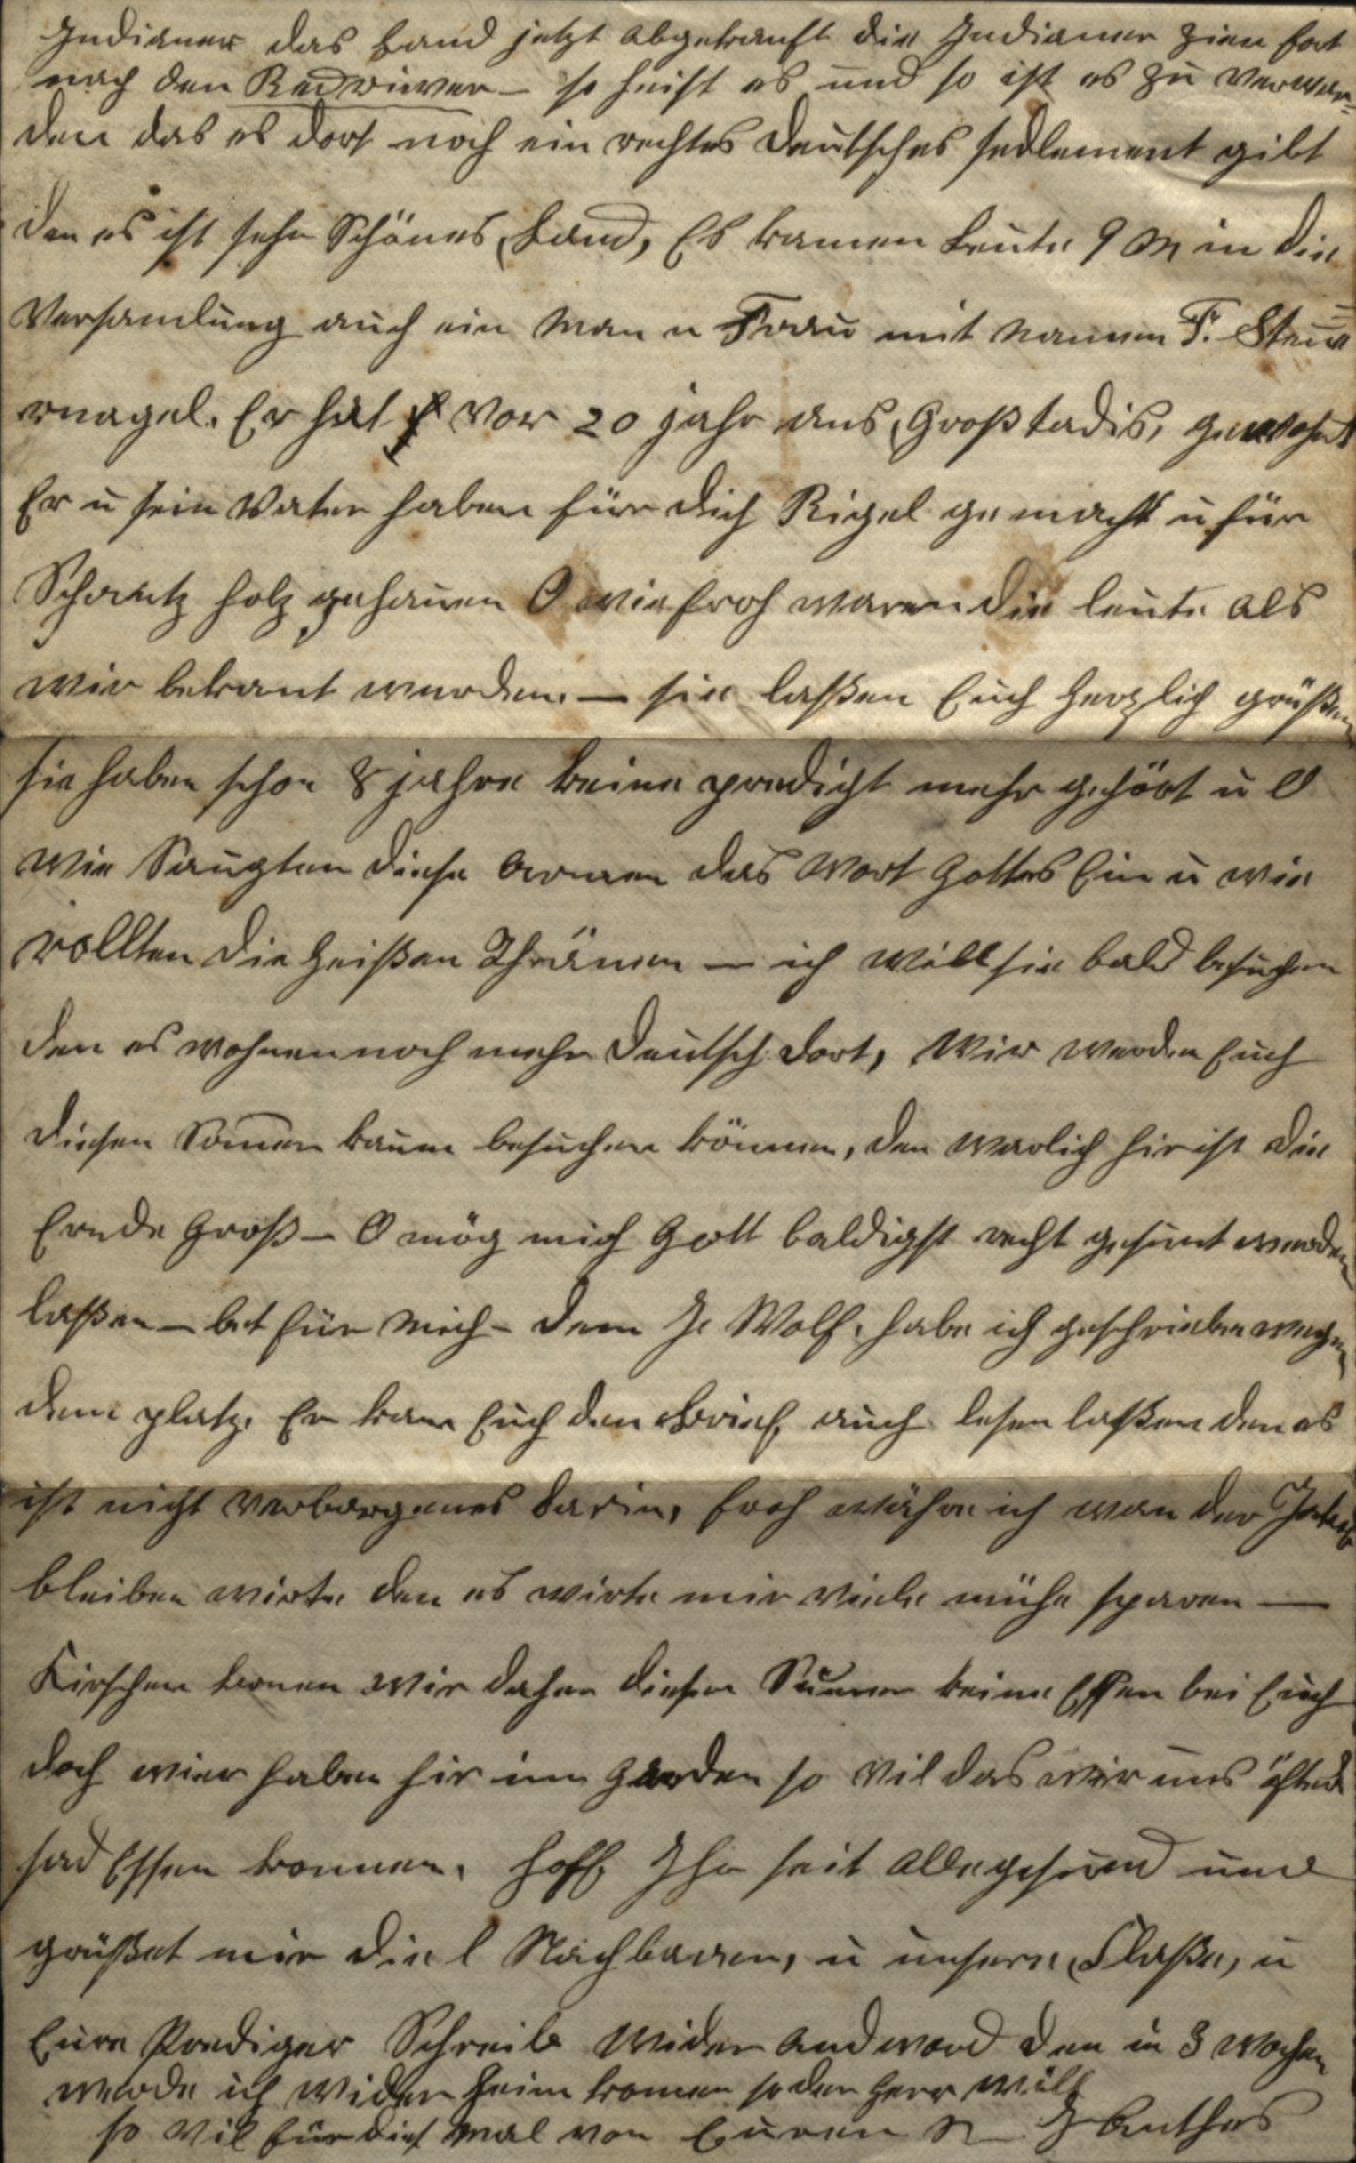 Indianer das Land jetzt abgekauft die Indianer zien fort
nach den Redriwer – so heist es und so ist es zu verwar=
den das es dort noch ein rechtes Deutsches sedlement gibt
den es ist sehr Schönes Land, Es kamen Leute 9 M in die
Versamlung auch ein Man u Frau mit Nammen F. Steu=
rnagel. Er hat vor 20 jahr ans Großtadis, gewohnt
Er u sein Vater haben für dich Rigel gemacht u für
Schantz holz gehauen O wie froh waren die leute als
wir bekant wurden. – sie laßen Euch herzlich grüßen
sie haben schon 8 jahre keine predigt mehr gehört u O
wie Saugten diese armen das Wort Gottes Ein u wie
rollten die heißen Thränen – ich will sie bald besuchen
den es wohnen noch mehr Deutsch dort, Wir werden Euch
diesen Somer kaum besuchen können, den warlich hir ist die
Ernde Groß – O mög mich Gott baldigst recht gesunt werden
laßen – bet für mich – dem J. Wolf, habe ich geschrieben wegen
dem platz. Er kan Euch den Brief auch lesen laßen den es
ist nicht verborgenes darin, froh währe ich wan der Jakob
bleiben wirte den es wirte mir viele mühe sparen —
Kirschen konen wir daher diesen Summer keine Essen bei Euch
doch wier haben hir im garden so vil das wir uns öfters
sad Essen konnen. Hoff Ihr seit alle gesund und
grüßet mir die l Nachbaren, u unsere Claße, u
Eure Prediger Schreib wider andword den in 3 wochen
werde ich wider heim komen so der Herr will
so vil für diß mal von Euren